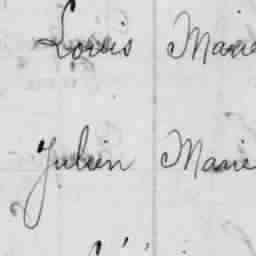 Louis Marie
Julien Marie